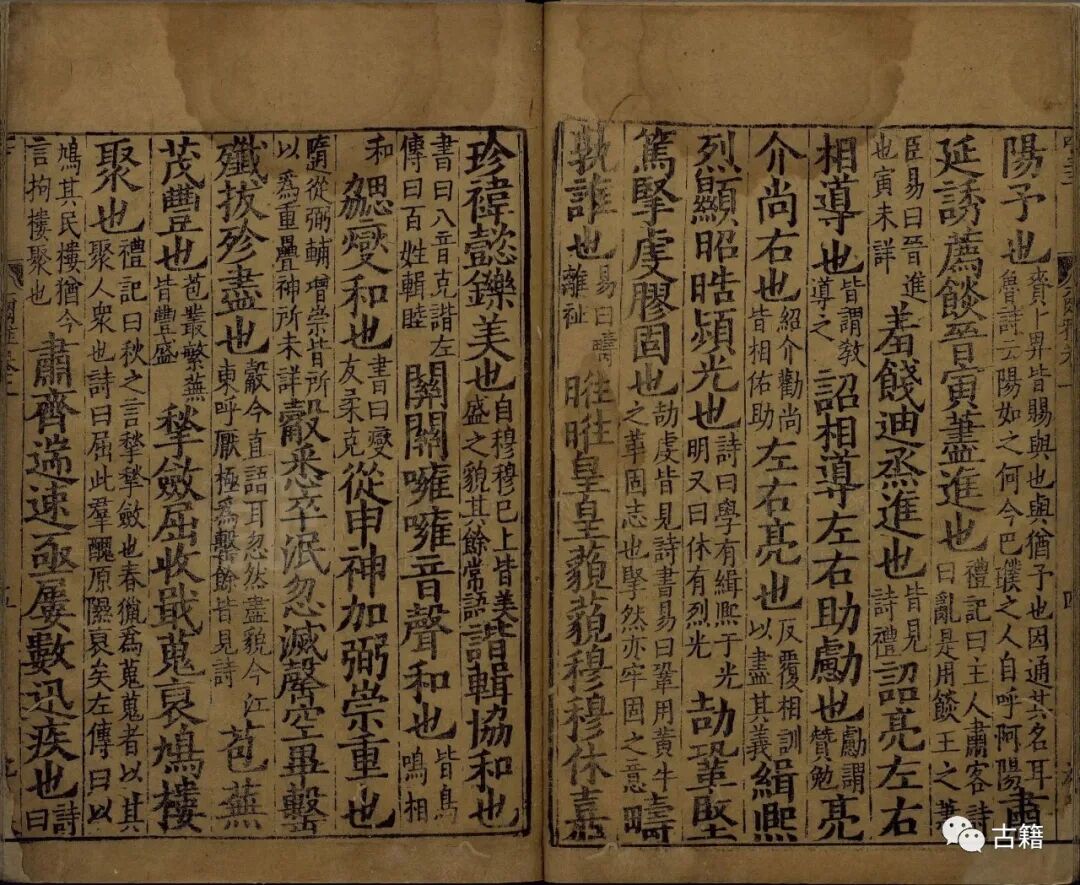 陽予也賚卜畀皆賜與也與猶予也因通其名耳魯詩云陽如之何今巴濮之人自呼阿陽肅
延誘薦餤晉寅藎進也禮記曰主人肅客詩曰亂是用餤王之藎
臣易曰晉進也寅未詳羞餞迪烝進也皆見詩禮詔亮左右
相導也皆謂敎導之詔相導左右助勴也勴謂贊勉亮
介尚右也紹介勸尚皆相佑助左右亮也反覆相訓以盡其義緝熙
烈顯昭晧熲光也詩曰學有緝熙于光明又曰休有烈光劼鞏堅
篤掔虔膠固也劼虔皆見詩書易曰鞏用黃牛之革固志也掔然亦牢固之意疇
孰誰也易曰疇離祉暀暀皇皇藐藐穆穆休嘉
珍禕懿鑠美也自穆穆已上皆美盛之貌其餘常語諧輯協和也
書曰八音克諧左傳曰百姓輯睦關關噰噰音聲和也皆鳥鳴相
和勰燮和也書曰燮友柔克從申神加弼崇重也
隨從弼輔增崇皆所以爲重疊神所未詳觳悉卒泯忽滅罄空畢罊
殲拔殄盡也觳今直語耳忽然盡貌今江東呼厭極爲罊餘皆見詩苞蕪
茂豐也苞叢繁蕪皆豐盛揫斂屈收戢蒐裒鳩樓
聚也禮記曰秋之言揫揫斂也春獵爲蒐蒐者以其聚人衆也詩曰屈此羣醜原隰裒矣左傳曰以
鳩其民樓猶今言拘樓聚也肅齊遄速亟屢數迅疾也詩曰
古籍